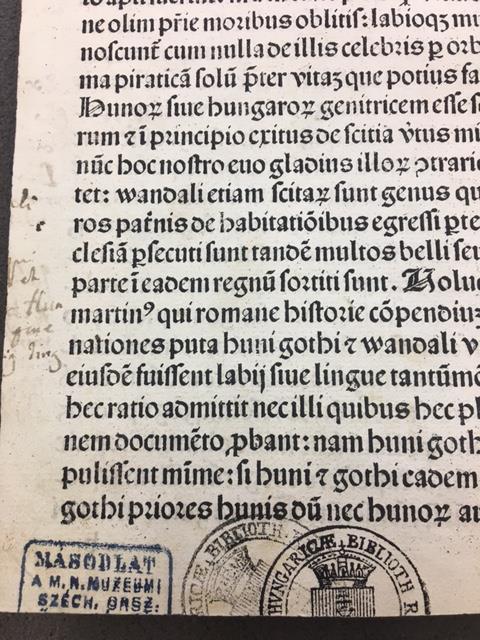 ne olim pr̃ie moribus oblitis: labioqꝫ
noscunt̃ cum nulla de illis celebris ꝑ orb
ma piraticã solũ p̃ter vitaꝫ que potius fa
Hunoꝝ siue hungaroꝝ genitricem esse
rum ⁊ ĩ principio exitus de scitia v̾tus
nũc hoc nostro euo gladius illoꝝ ↄtrari
tet: wandali etiam scitaꝝ sunt genus
ros pat̾nis de habitatiõibus egressi
clesiã ꝑsecuti sunt tandẽ multos belli
parte ĩ eadem regnũ sortiti sunt. Holu
martinꝰ qui romane historie cõpendiuꝫ
nationes puta huni gothi ⁊ wandali v
eiusdẽ fuissent labij siue lingue tantũm
hec ratio admittit nec illi quibus hec
nem documẽto ꝓbant: nam huni goth
pulissent mĩme: si huni ⁊ gothi eadem
gothi priores hunis dũ nec hunoꝝ
MÁSODLAT
A M. N. MUZEUMI
SZÉCH. ORSZ:
BIBLIOTH.
HUNGARICÆ BIBLIOTH